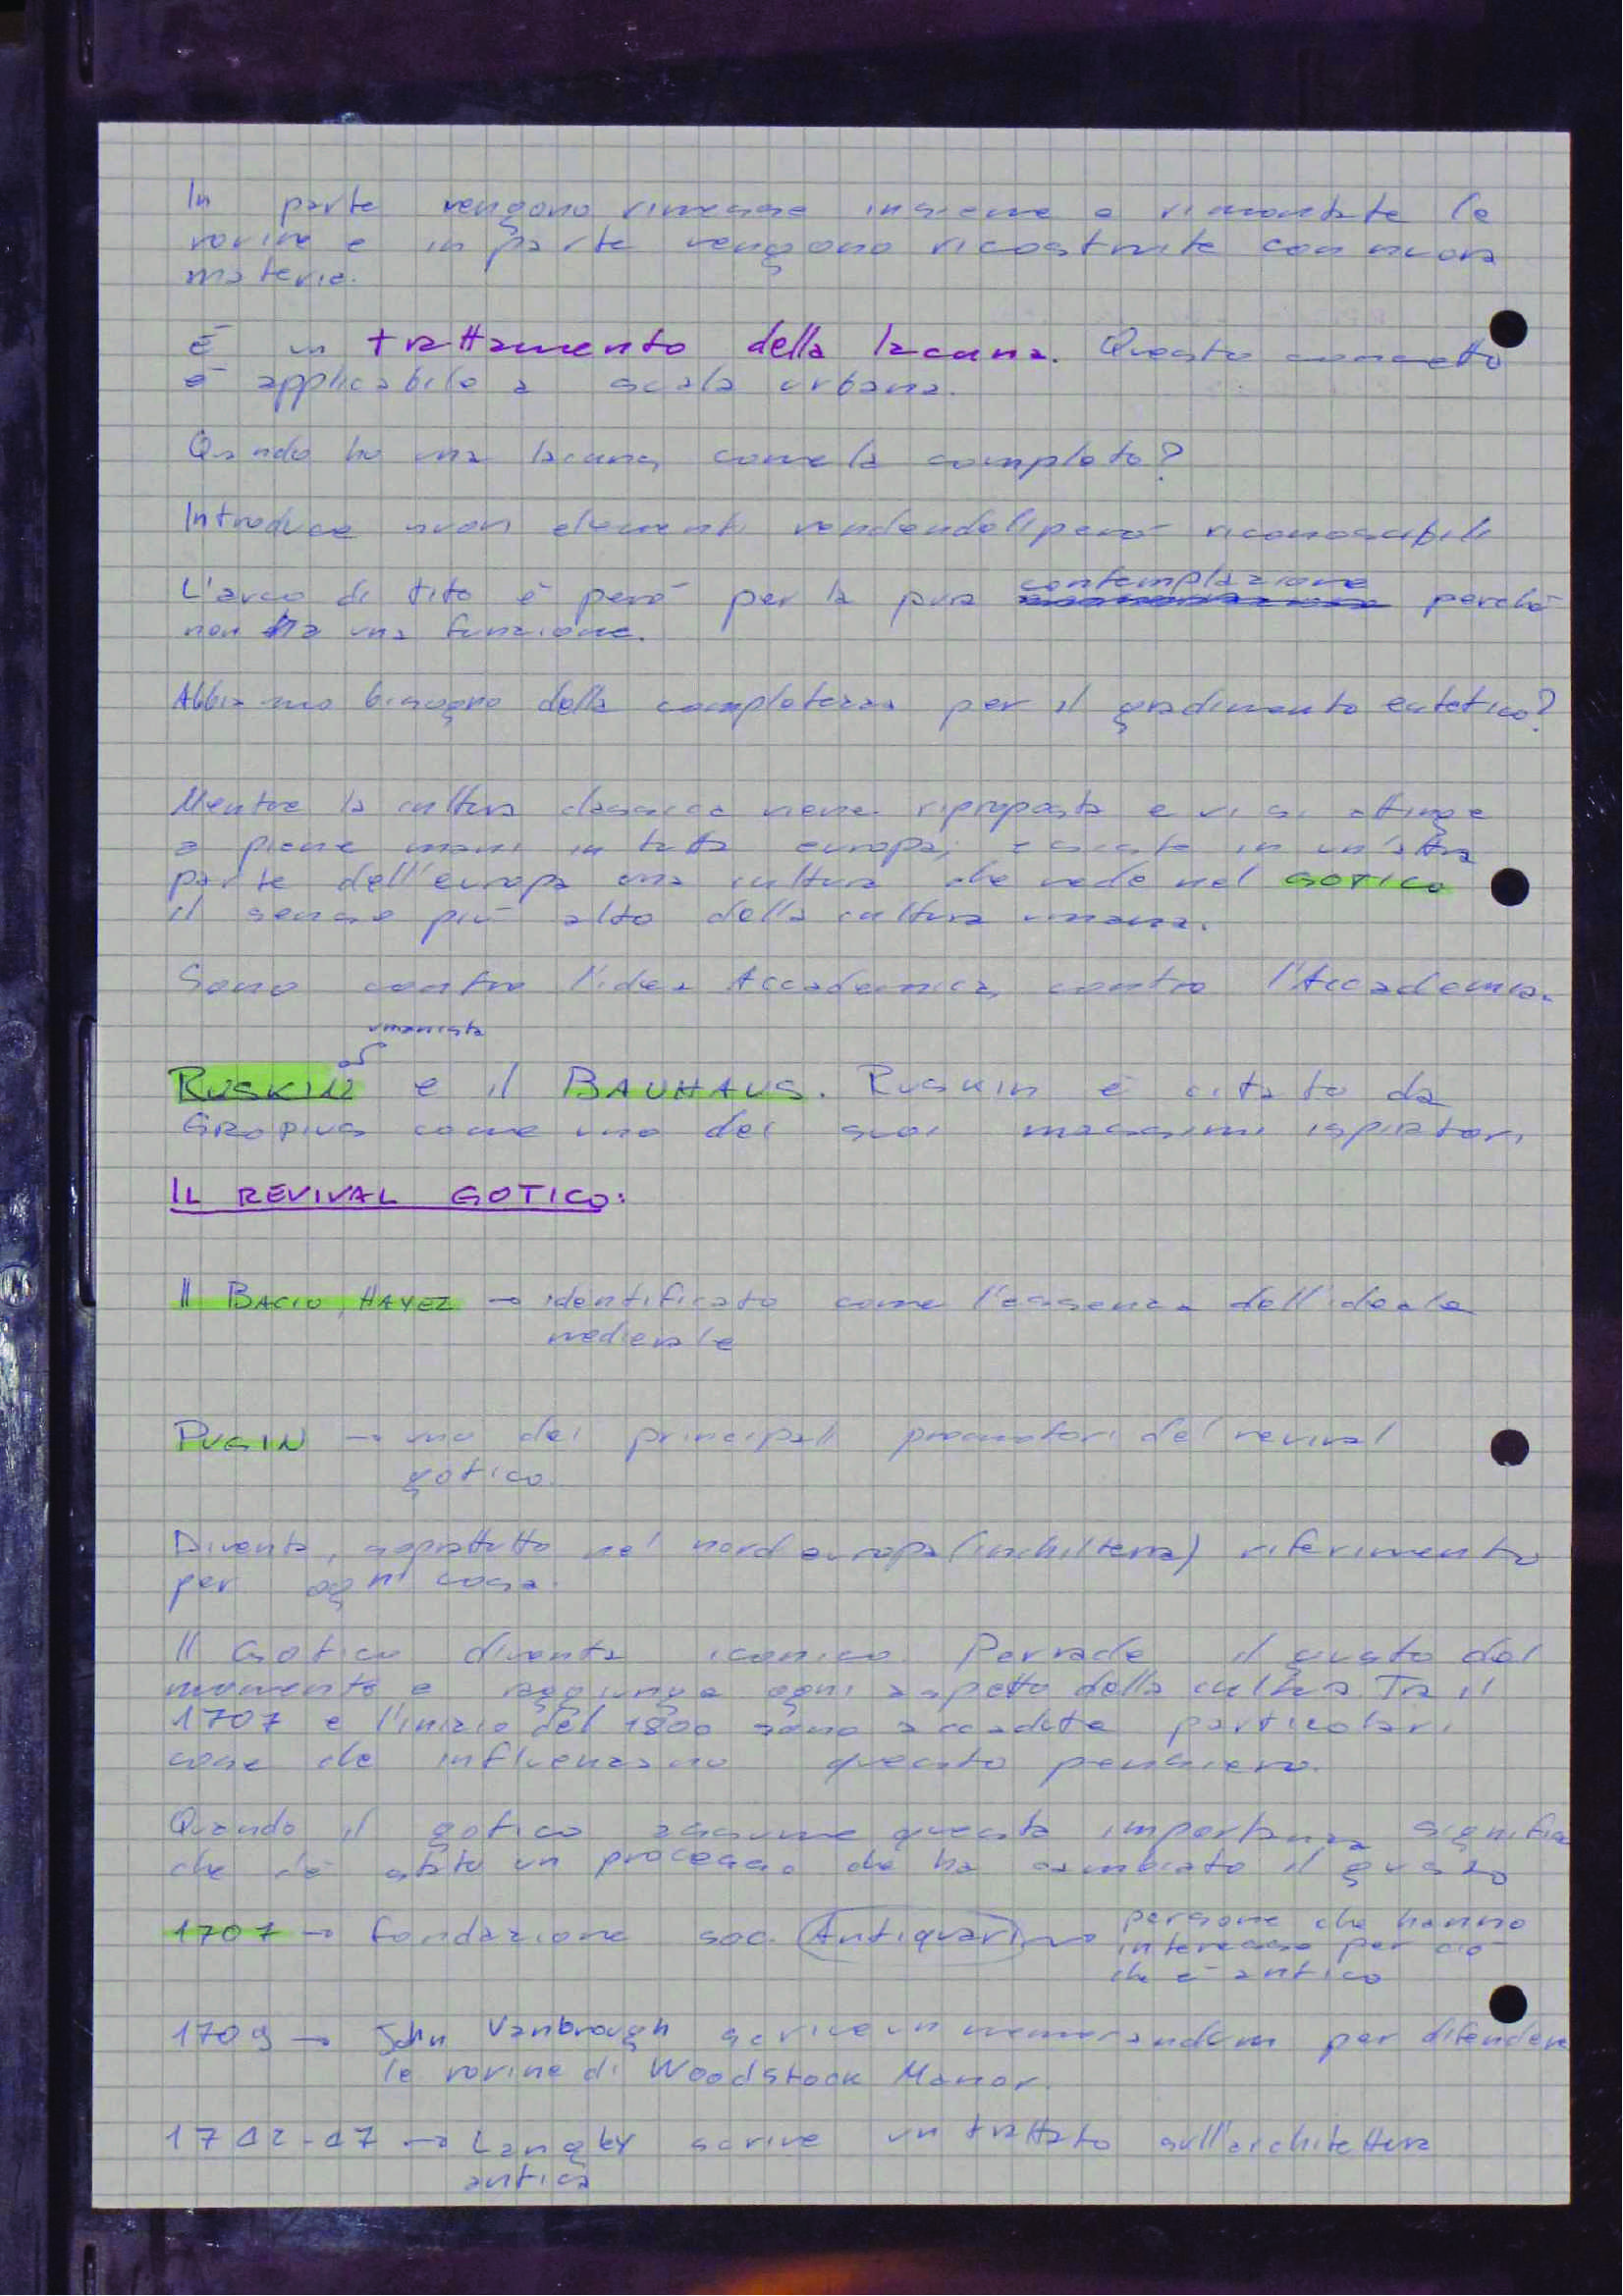 In parte vengono rimesse insieme e rimontate le
rovine e in parte vengono ricostruite con nuova
materia.
È un trattamento della lacuna. Questo concetto
è applicabile a scala urbana.
Quando ho una lacuna, come la completo?
Introduce nuovi elementi rendendoli però riconoscibili
L'arco di tito è però per la pura contemplazione perché
non ha una funzione.
Abbiamo bisogno della completezza per il gradimento estetico?
Mentre la cultura classica viene riproposta e vi si attinge
a piene mani in tutta europa, esiste in un'altra
parte dell'europa una cultura che vede nel GOTICO
il senso più alto della cultura umana.
Sono contro l'idea Accademica, contro l'Accademia.
umanista
RUSKIN e il BAUHAUS. RUSKIN è citato da
GROPIUS come uno dei suoi massimi ispiratori
IL REVIVAL GOTICO:
Il BACIO, HAYEZ → identificato come l'essenza dell'ideale
medievale
PUGIN → uno dei principali promotori del revival
gotico.
Diventa, soprattutto nel nord europa (inchilterra) riferimento
per ogni cosa.
Il Gotico diventa iconico. Pervade il gusto del
momento e raggiunge ogni aspetto della cultura. Tra il
1707 e l'inizio del 1800 sono accadute particolari
cose che influenzano questo pensiero.
Quando il gotico assume questa importanza significa
che c'è stato un processo che ha cambiato il gusto
1707 → fondazione soc. Antiquari → persone che hanno
interesse per ciò
che è antico
1709 → John Vanbrough scrive un memorandum per difendere
le rovine di Woodstock Manor.
1742-47 → Langley scrive un trattato sull'architettura
antica